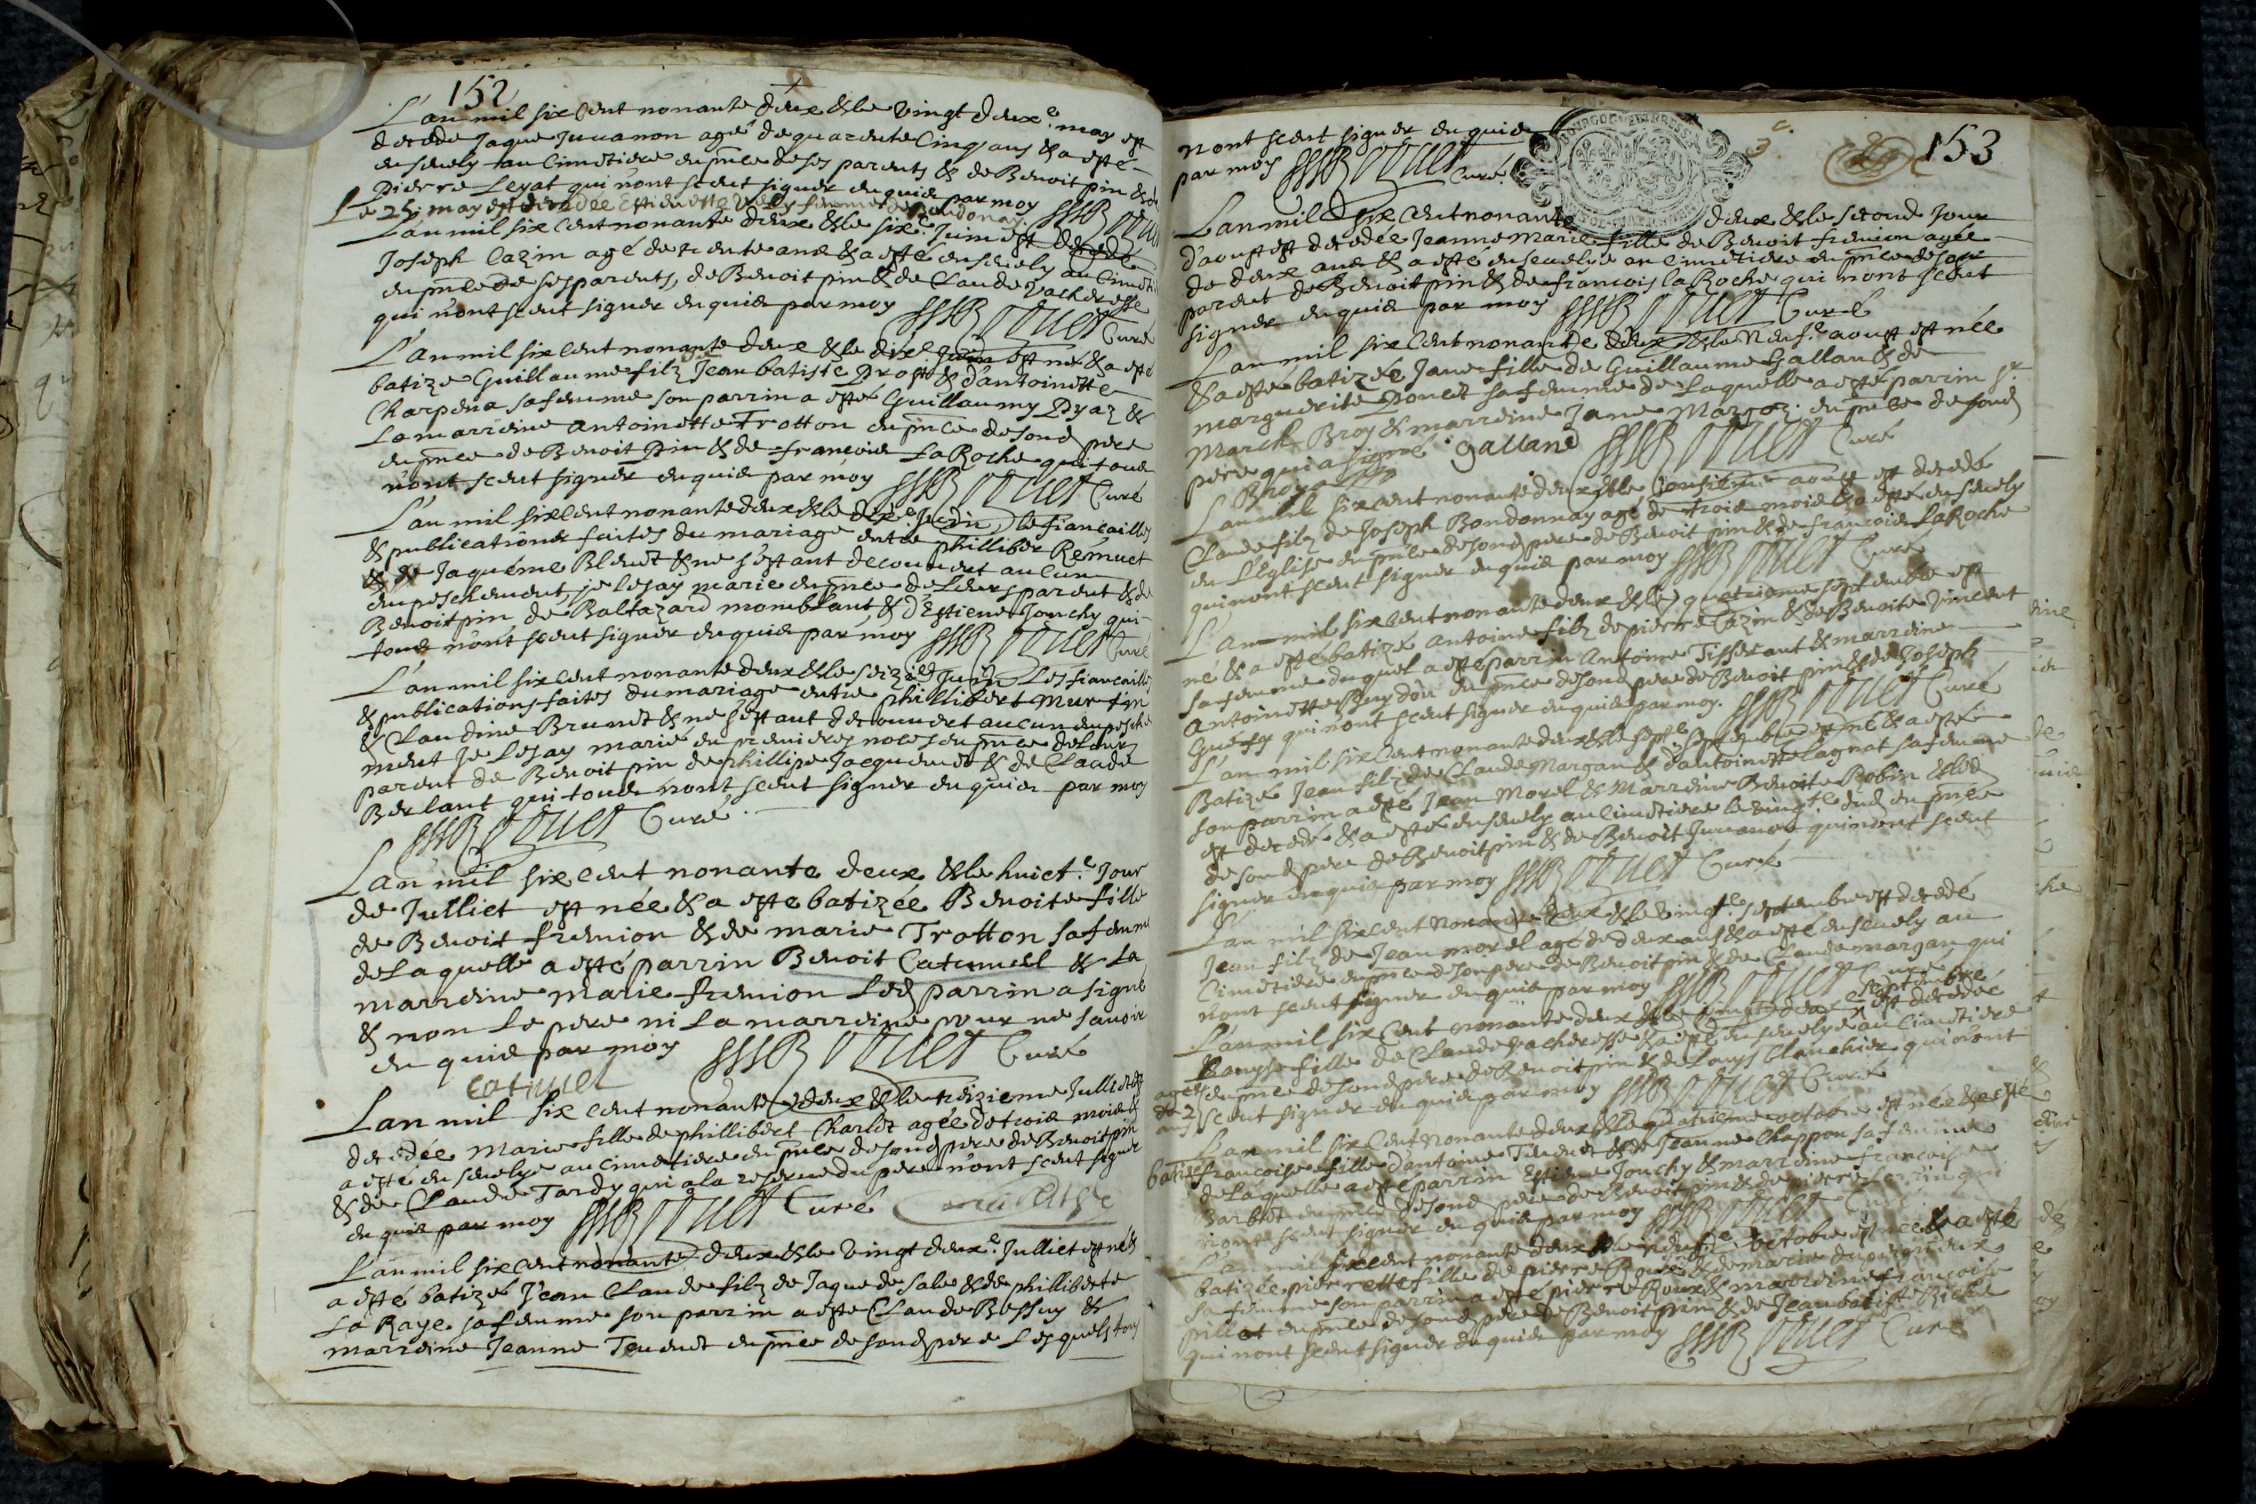 152
L'an mil six cent nonante deux & le vingt deux.e may est
decede Jaque Juuanon agé de quarente cinq ans & a esté
ensevely au cimetiere en pnce de ses parents & de Benoit pin & de
Pierre Leyat qui n'ont sceut signer enquis par moy
Le 25 may est decedée femme de
L'an mil six cent nonante deux & le six.e Juin est decedé
Joseph Cazin agé de trente ans & a esté ensevely au cimeti
en pnce de ses parents, de Benoit pin & de Claude Vacheresse
qui n'ont sceut signer enquis par moy Curé
L'an mil six cent nonante deux & le dix.e Juin est né & a esté
batizé Guillaume filz Jean batiste Prost & d'antoinette
Charpena sa femme son parrin a esté Guillaumy Dyaz &
La marreine Antoinette Trotton en pnce de sond pere
en pnce de Benoit Pin & de francois LaRoche qui tous
n'ont sceut signer enquis par moy Curé
L'an mil six cent nonante deux & le dix.e Juin, le fiancailles
& publications faites du mariage entre philliber Remuet
& de Jaquéme Bluet & ne s'estant decouvert aucun
empeschement, je les ay marie en pnce de Leurs parent & de
Benoit pin, de Baltazard momblant & d'Estiene Jonchy qui
tous n'ont sceut signer enquis par moy Curé
L'an mil six cent nonante deux & le seiz.e Juin Les fiancailles
& publications faites du mariage entre phillibert Murtin
& Claudine Brunet & ne s'estant decouvert aucun empesche
ment Je Les ay marié en premieres noces en pnce de Leurs
parent de Benoit pin de phillipe Jacquemet & de Claude
Berlant qui tous n'ont sceut signer enquis par moy
Curé
L'an mil six cent nonante deux & le huict.e Jour
de Julliet est née & a este batizée Benoite fille
de Benoit fremion & de marie Trotton sa femme
de Laquelle a esté parrin Benoit Catimel & La
marreine marie fremion Led parrin a signé
& non Le pere ni La marreine pour ne savoir
enquis par moy Curé
catimel
L'an mil six cent nonante deux & le treizieme Julliet est
decedée Marie fille de phillibert Charlet agée de trois mois &
a esté ensevelye au cimetiere en pnce de sond pere de Benoit pin
& de Claude Tardy qui a la reserve du pere n'ont sceut signer
enquis par moy Curé
L'an mil six cent nonante deux & le vingt deux.e Julliet est né &
a esté batizé Jean Claude filz de Jaque de sale & de philliberte
La Raye sa femme son parrin a este Claude Bessuy &
marreine Jeanne Teuenet en pnce de sond pere Lesquels tous
153
n'ont sceut signer enquis
par moy Curé
L'an mil six cent nonante deux & le second Jour
d'aoust est decedée Jeanne Marie fille de Benoit fremion agée
de deux ans & a esté ensevelye au cimetiere en pnce de son
parent de Benoit pin & de francois la Roche qui n'ont sceut
signer enquis par moy Curé
L'an mil six cent nonante deux & le Neuf.e aoust est née
& a esté batizée Jane fille de Guillaume Gallan & de
marguerite Poncet sa femme de Laquelle a esté parrin s.r
March Broy & marreine Jane Margoz en pnce de sond
pere qui a signé galland Curé
Broy
L'an mil six cent nonante deux & le aoust est decedé
Claude filz de Joseph Bondonnay agé de trois mois & a esté ensevely
en L'Eglise en pnce de sond pere de Benoit pin & de francois LaRoche
qui n'ont sceut signer enquis par moy Curé
L'an mil six cent nonante deux & le quatrieme septembre est
né & a esté batizé Antoine filz de pierre Cazin & de Benoite Vincent
sa femme duquel a esté parrin Antoine Tisserant & marreine
Antoinette Buydon en pnce de sond pere de Benoit pin & de Joseph
qui n'ont sceut signer enquis par moy. Curé
L'an mil six cent nonante deux & le sept.e septembre est né & a esté
Batizé Jean filz de Claude Margan & d'antoinette Lagnat sa femme
son parrin a esté Jean Morel & Marreine Benoite Robin & led
est decedé & a esté ensevely au cimetiere le vingt.e dud en pnce
de sond pere de Benoit pin & de Benoit Juuanon qui n'ont sceut
signer enquis par moy Curé
L'an mil six cent Nonante deux & le vingt.e septembre est decedé
Jean filz de Jean morel agé de deux ans & a esté ensevely au
Cimetiere en pnce de son pere de Benoit pin & de Claude margan qui
n'ont sceut signer enquis par moy Curé
L'an mil six Cent nonante deux & le vingt deux.e septembre est decedée
fille de Claude Vacheresse & a esté ensevelye au Cimetiere
agée de 2 ans
en pnce de sond pere de Benoit pin & de Louys qui n'ont
sceut signer enquis par moy Curé
L'an mil six Cent Nonante deux & le quatrieme octobre est née & a esté
batizée francoise fille d'antoine Teuenet & de Jeanne Chappon sa femme
de Laquelle a esté parrin Estiene Jonchy & marreine francoise
Barbet en pnce de sond pere de Benoit pin & de pierre qui
n'ont sceut signer enquis par moy Curé
L'an mil six cent nonante deux & le octobre est née & a esté
batizée pierrette fille de pierre & de marie
sa femme son parrin a esté pierre Roux & marreine francoise
pillot en pnce de sond pere de Benoit pin & de Jean batiste
qui n'ont sceut signer enquis par moy Curé